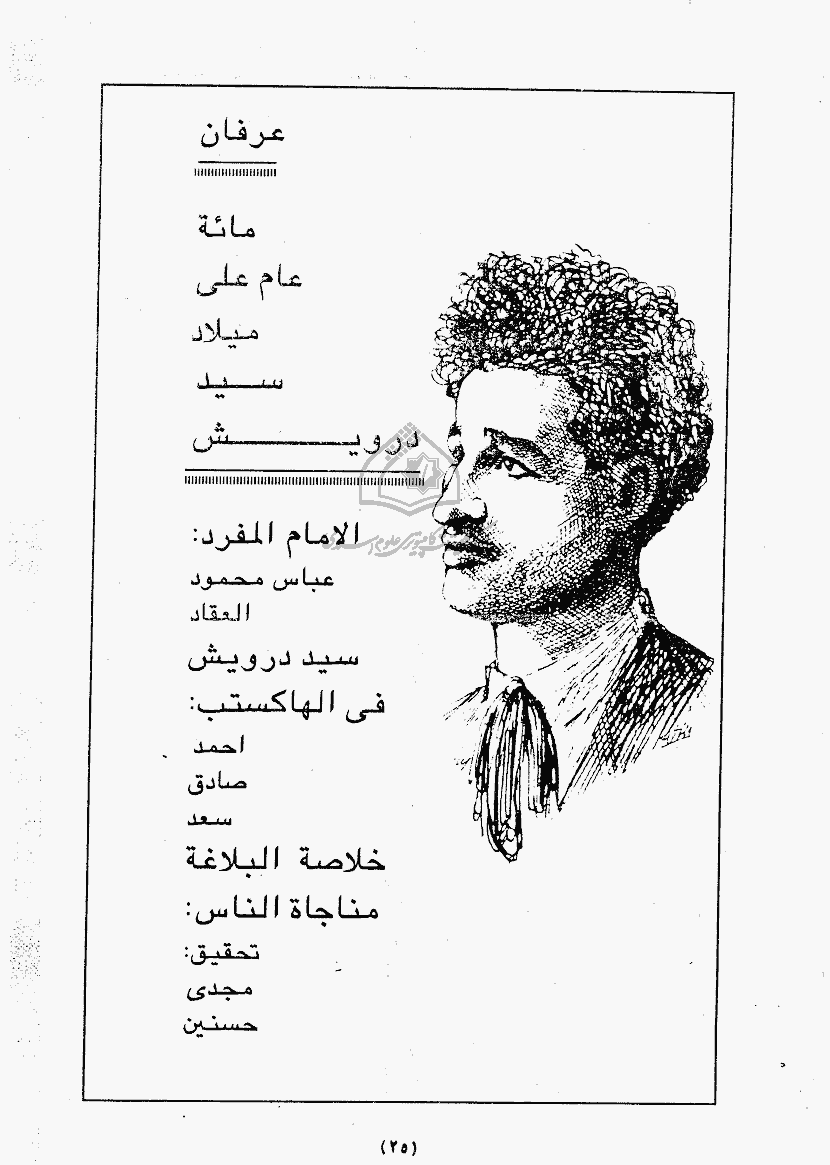 عرفان
مائة
عام على
ميلاد
سيـــد
درويـــــــــش
الامام المفرد:
عباس محمود
العقاد
سيد درويش
فى الهاكستب:
احمد
صادق
سعد
خلاصة البلاغة
مناجاة الناس:
تحقيق:
مجدى
حسنين
(٢٥)